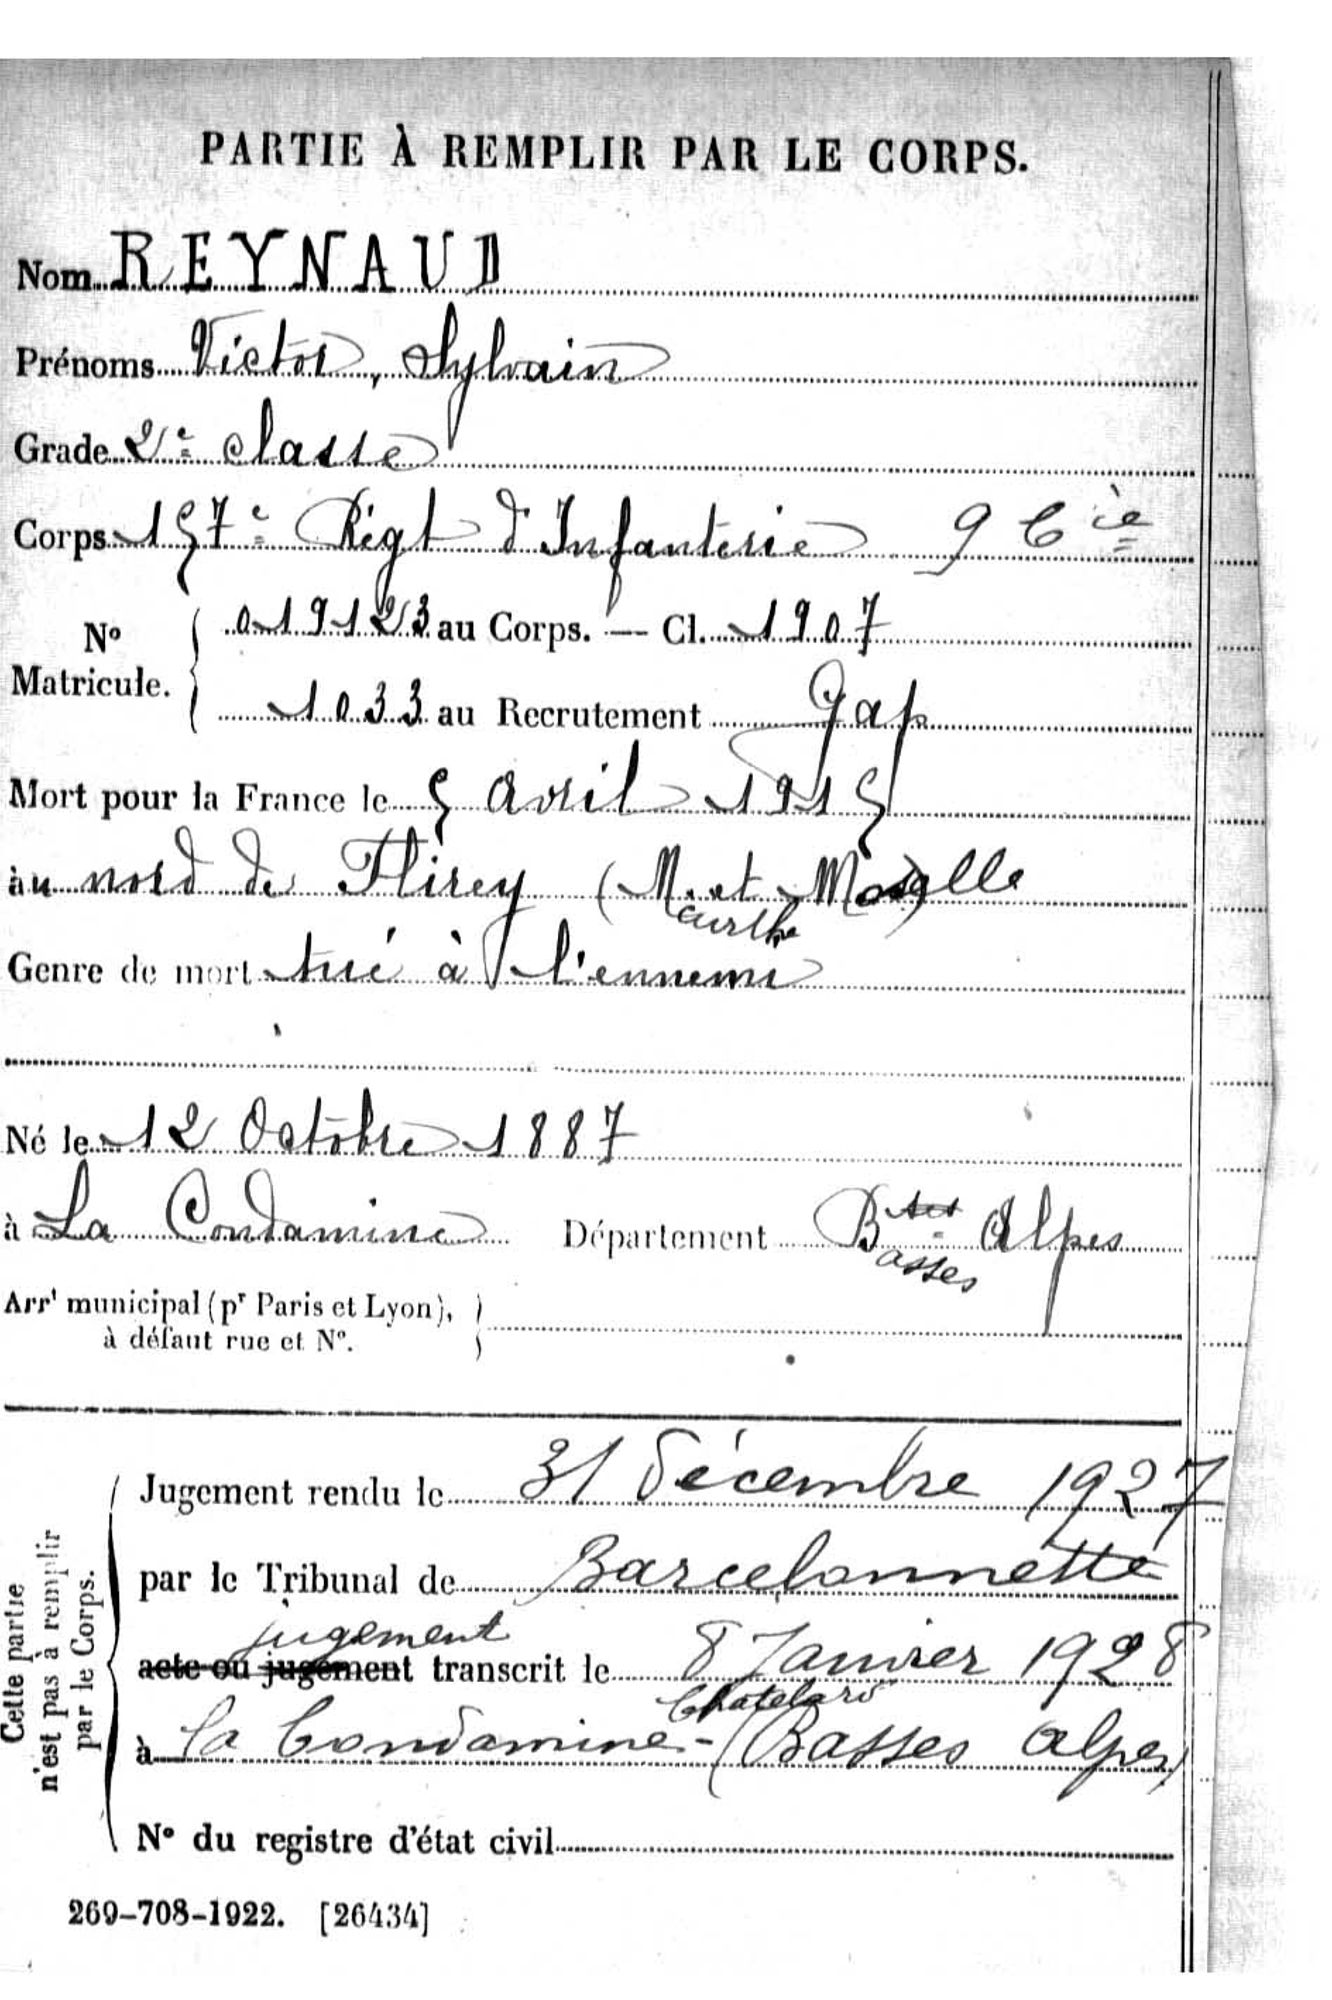 PARTIE À REMPLIR PAR LE CORPS.
Nom REYNAUD
Prénoms Victor, Sylvain
Grade 2e classe
Corps 157e Régt d'Infanterie 9 Cie
No Matricule. 019123 au Corps. — Cl. 1907
1033 au Recrutement Gap
Mort pour la France le 5 avril 1915
au nord de Flirey (M. et Moselle
eurthe
Genre de mort tué à l'ennemi
Né le 12 Octobre 1887
à La Condamine Département Bses Alpes
asses
Arrt municipal (pr Paris et Lyon),
à défaut rue et No.
Cette partie
n'est pas à remplir
par le Corps.
Jugement rendu le 31 Décembre 1927
par le Tribunal de Barcelonnette
jugement
acte ou jugement transcrit le 8 Janvier 1928
Chatelard
à la Condamine - (Basses Alpes)
No du registre d'état civil
269-708-1922. [26434]